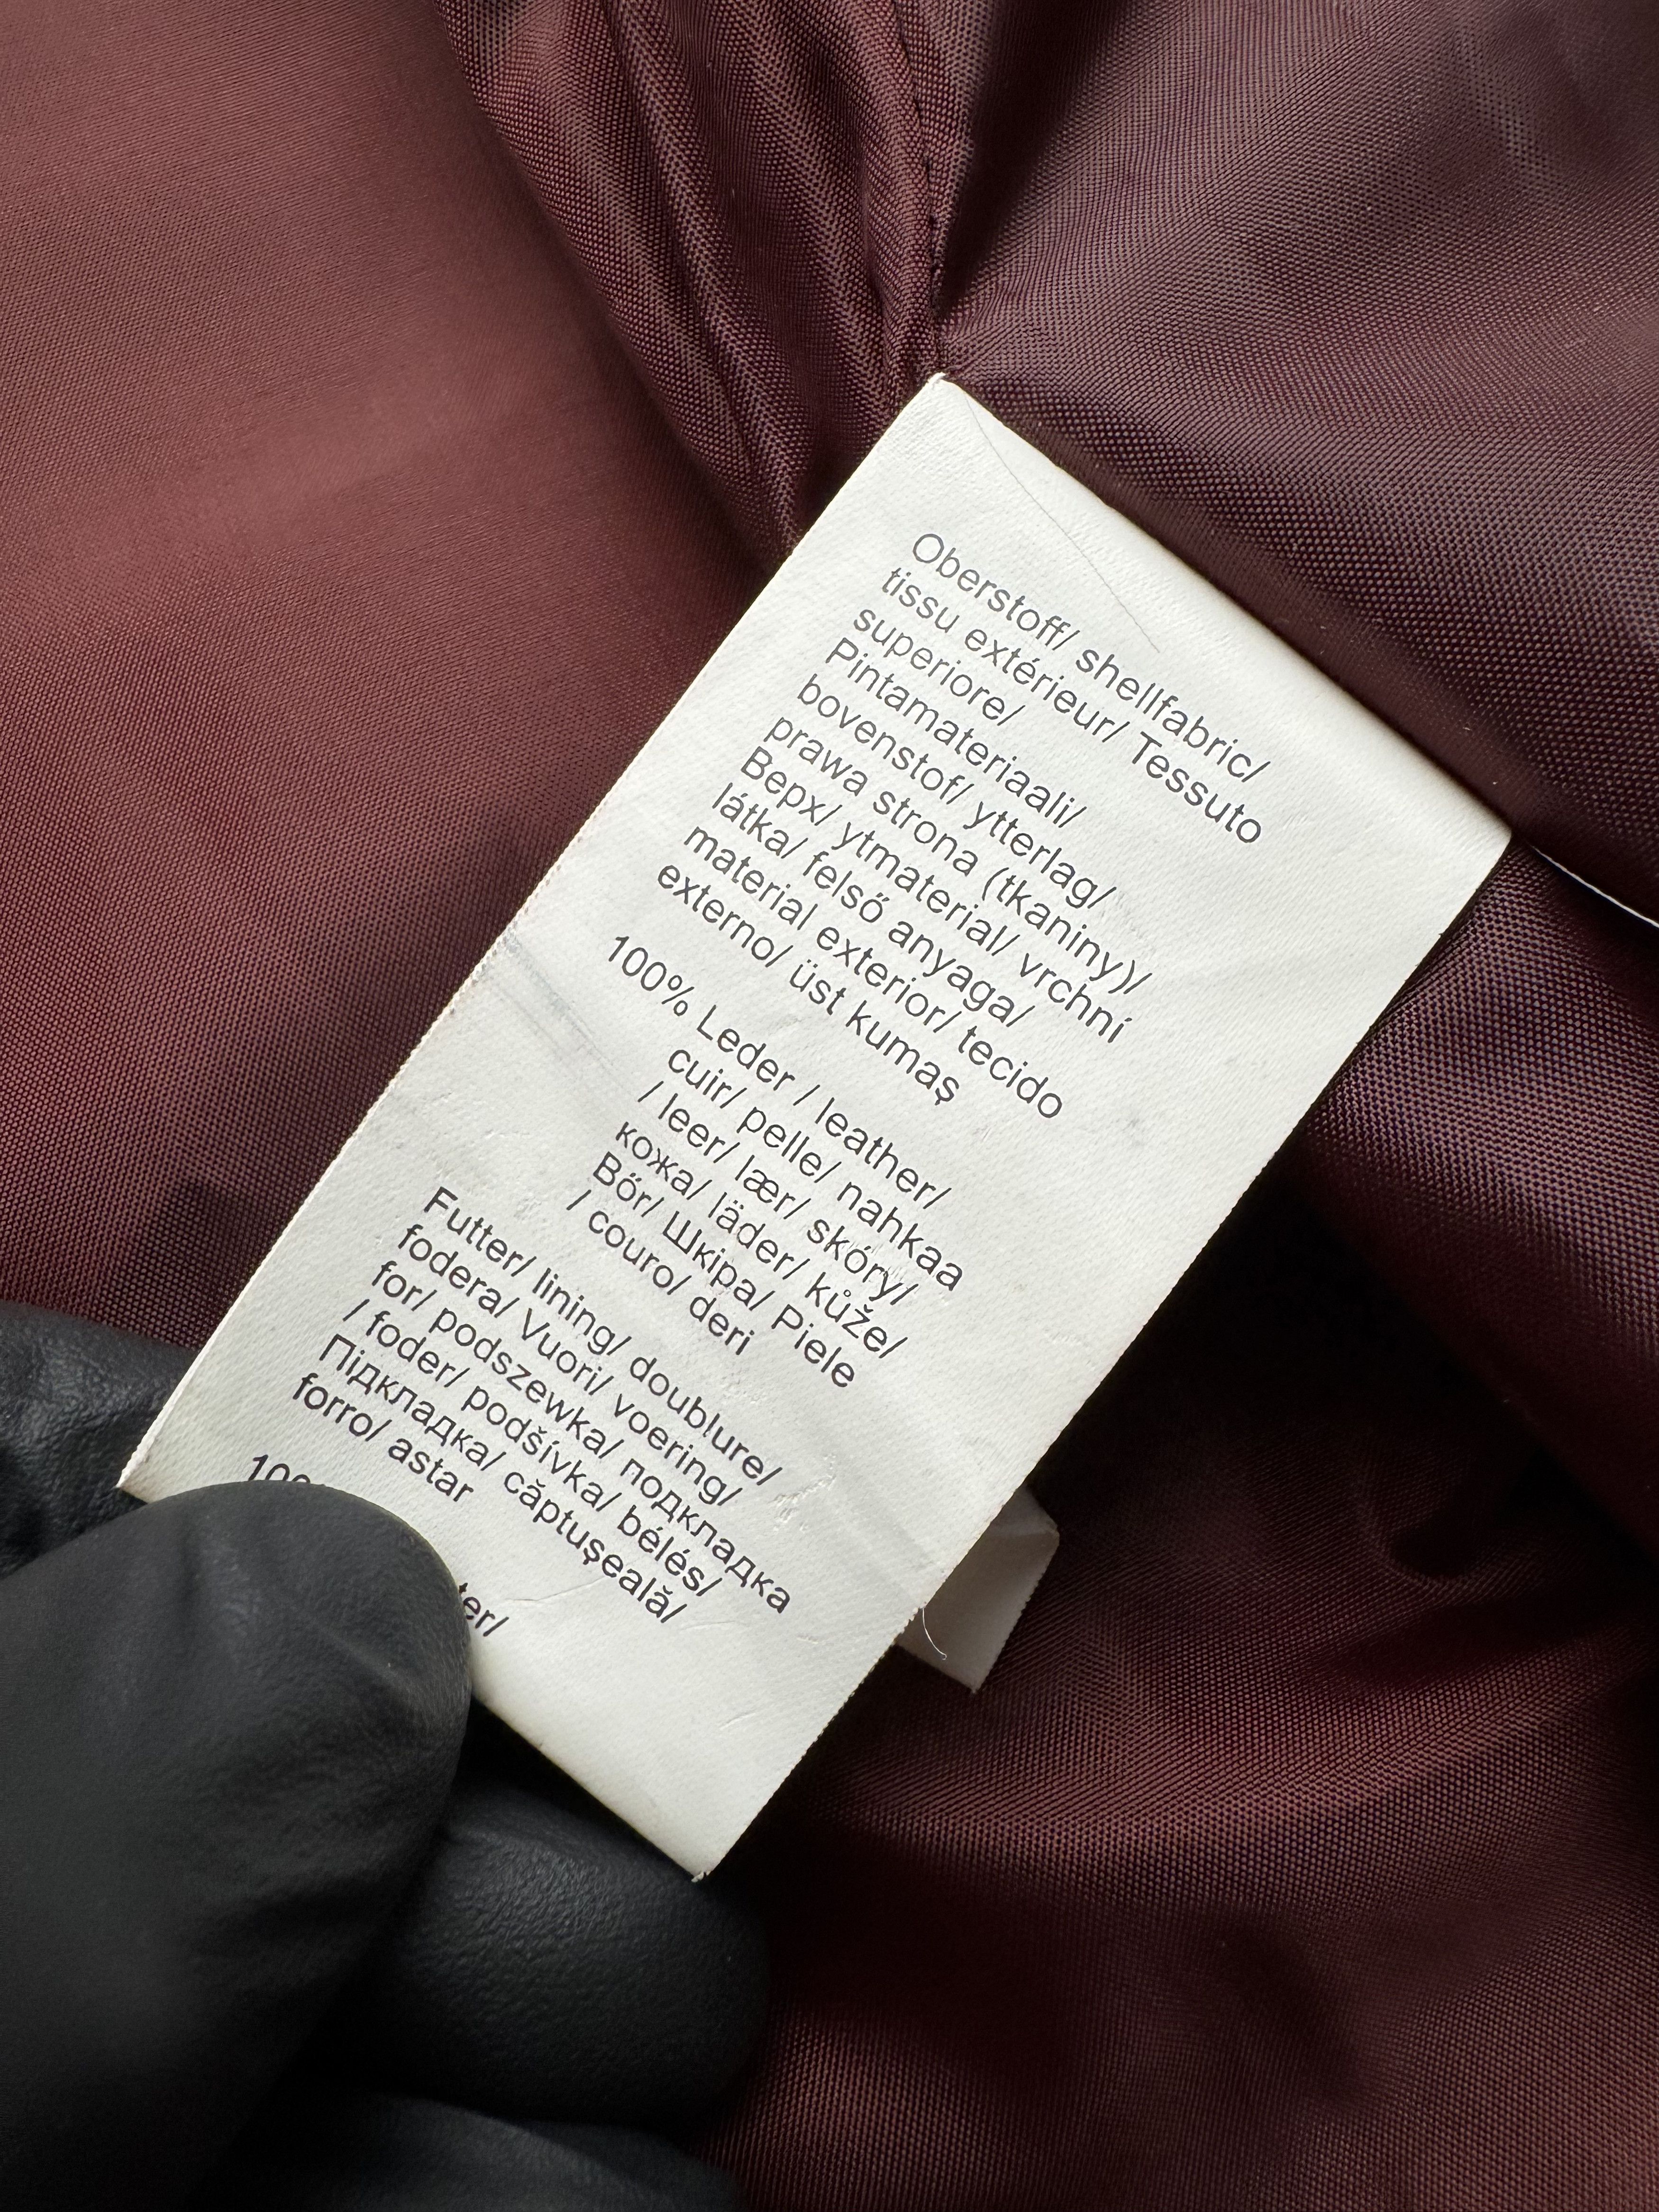 Oberstoff/ shellfabric/
tissu extérieur/ Tessuto
superiore/
Pintamateriaali/
bovenstof/ ytterlag/
prawa strona (tkaniny)/
Верх/ ytmaterial/ vrchní
látka/ felső anyaga/
material exterior/ tecido
externo/ üst kumaş
100% Leder / leather/
cuir/ pelle/ nahkaa
/ leer/ lær/ skóry/
кожа/ läder/ kůže/
Bőr/ Шкіра/ Piele
/ couro/ deri
Futter/ lining/ doublure/
fodera/ Vuori/ voering/
for/ podszewka/ подкладка
/ foder/ podšívka/ bélés/
Підкладка/ căptuşeală/
forro/ astar